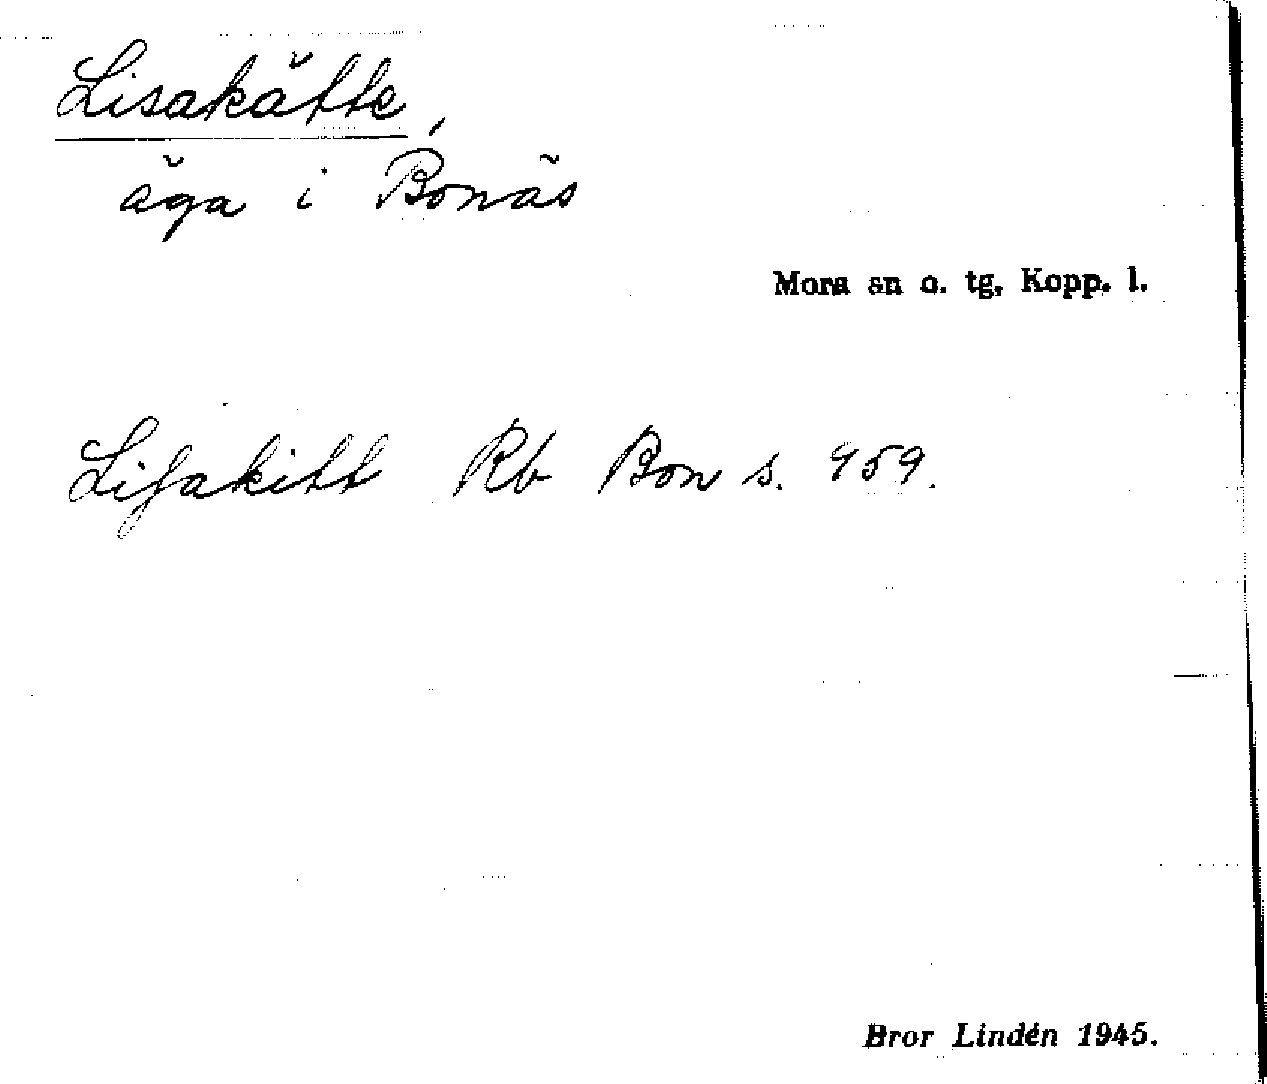 Lisakätte,
äga i Bonäs
Mora sn o. tg, Kopp. l.
Liſakitt Rb Bon s. 959.
Bror Lindén 1945.